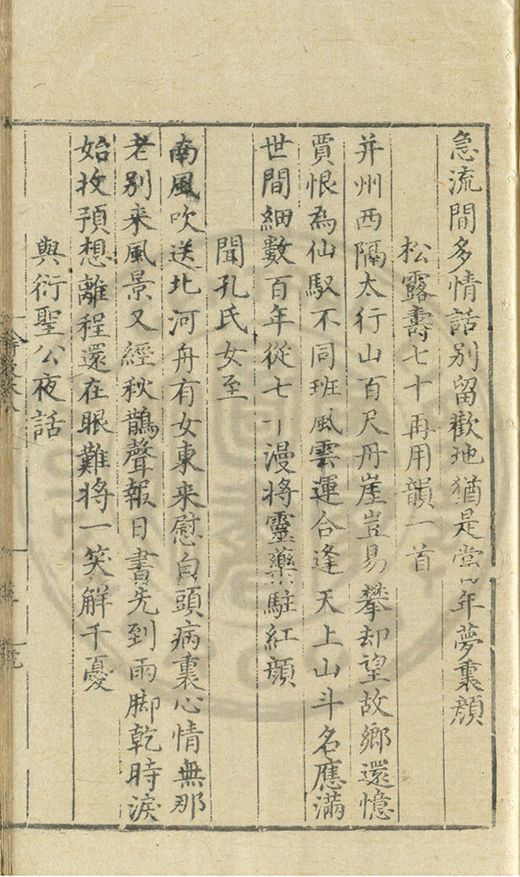 急流間多情話別留歡地猶是當年夢裏顏
松露壽七十再用韻一首
并州西隔太行山百尺丹崖豈易攀却望故鄉還憶
賈恨為仙馭不同班風雲運合逢天上山斗名應滿
世間細數百年從七十漫將靈藥駐紅顏
聞孔氏女至
南風吹送北河舟有女東来慰白頭病裏心情無那
老別来風景又經秋鵲聲報日書先到雨脚乾時淚
始收預想離程還在眼難將一笑解千憂
與衍聖公夜話